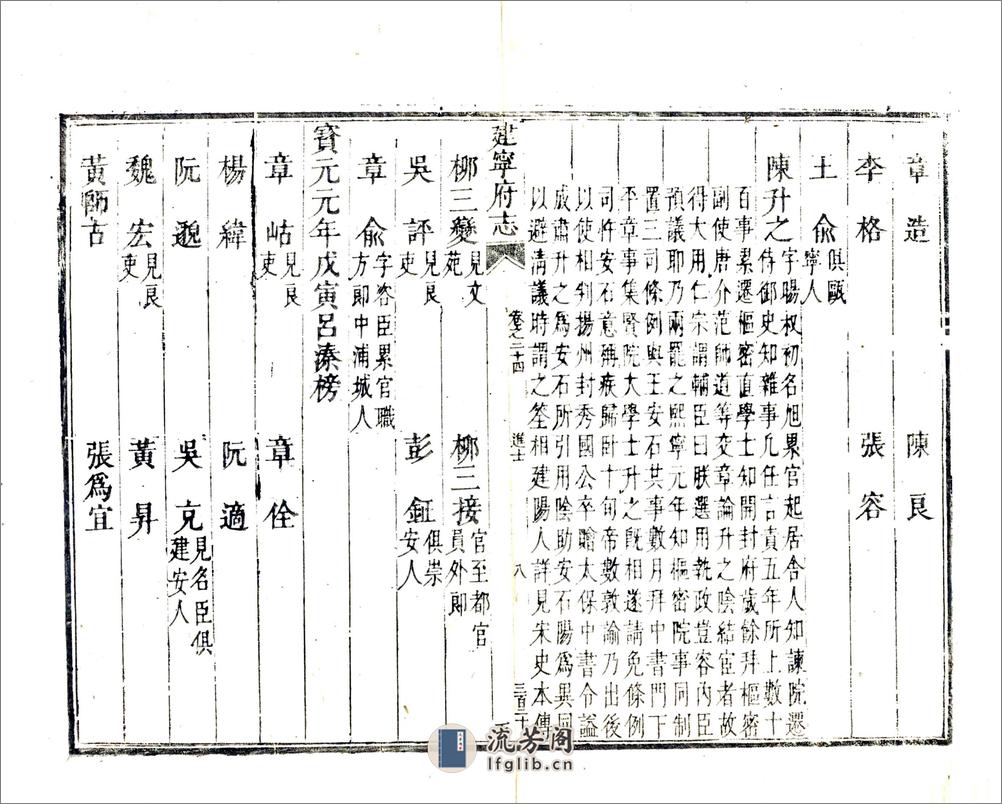 章造　陳良
李格　張容
王俞俱甌
寧人
陳升之字暘叔初名旭累官起居舍人知諫院遷
侍御史知雜事凡任言責五年所上數十
百事累遷樞密直學士知開封府歲餘拜樞密
副使唐介范師道等交章論升之陰結宦者故
得大用仁宗謂輔臣曰朕選用執政豈容內臣
預議耶乃兩罷之熙寧元年知樞密院事同制
置三司條例與王安石共事數月拜中書門下
平章事集賢院大學士升之既相遂請免條例
司忤安石意稱疾歸卧十旬帝數敦諭乃出後
以使相判揚州封秀國公卒贈太保中書令諡
成肅升之為安石所引用陰助安石陽為異同
以避清議時謂之筌相建陽人詳見宋史本傳
建寧府志　卷之二十四　進士　八　三百二十
柳三變見文
苑　柳三接官至都官
員外郎
吳評見良
吏　彭鉦俱崇
安人
章俞字咨臣累官職
方郎中浦城人
寶元元年戊寅呂溱榜
章岵見良
吏　章佺
楊緯　阮適
阮邈　吳充見名臣俱
建安人
魏宏見良
吏　黃昇
黃師古　張為宜
流芳阁
lfglib.cn